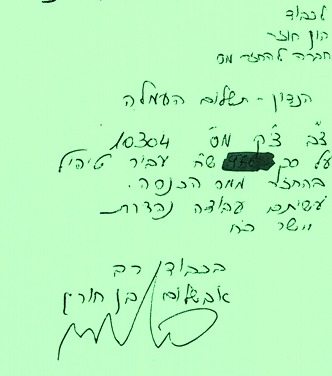 לכבוד
הון חוזר
חברה להחזר מס
הנדון - תשלום העמלה
צ"ב צ'ק מס' 10304
על סך ש"ח עבור טיפול
בהחזר ממס הכנסה.
עשיתם עבודה נהדרת
יישר כח
בכבוד רב
אבשלום בן חורין